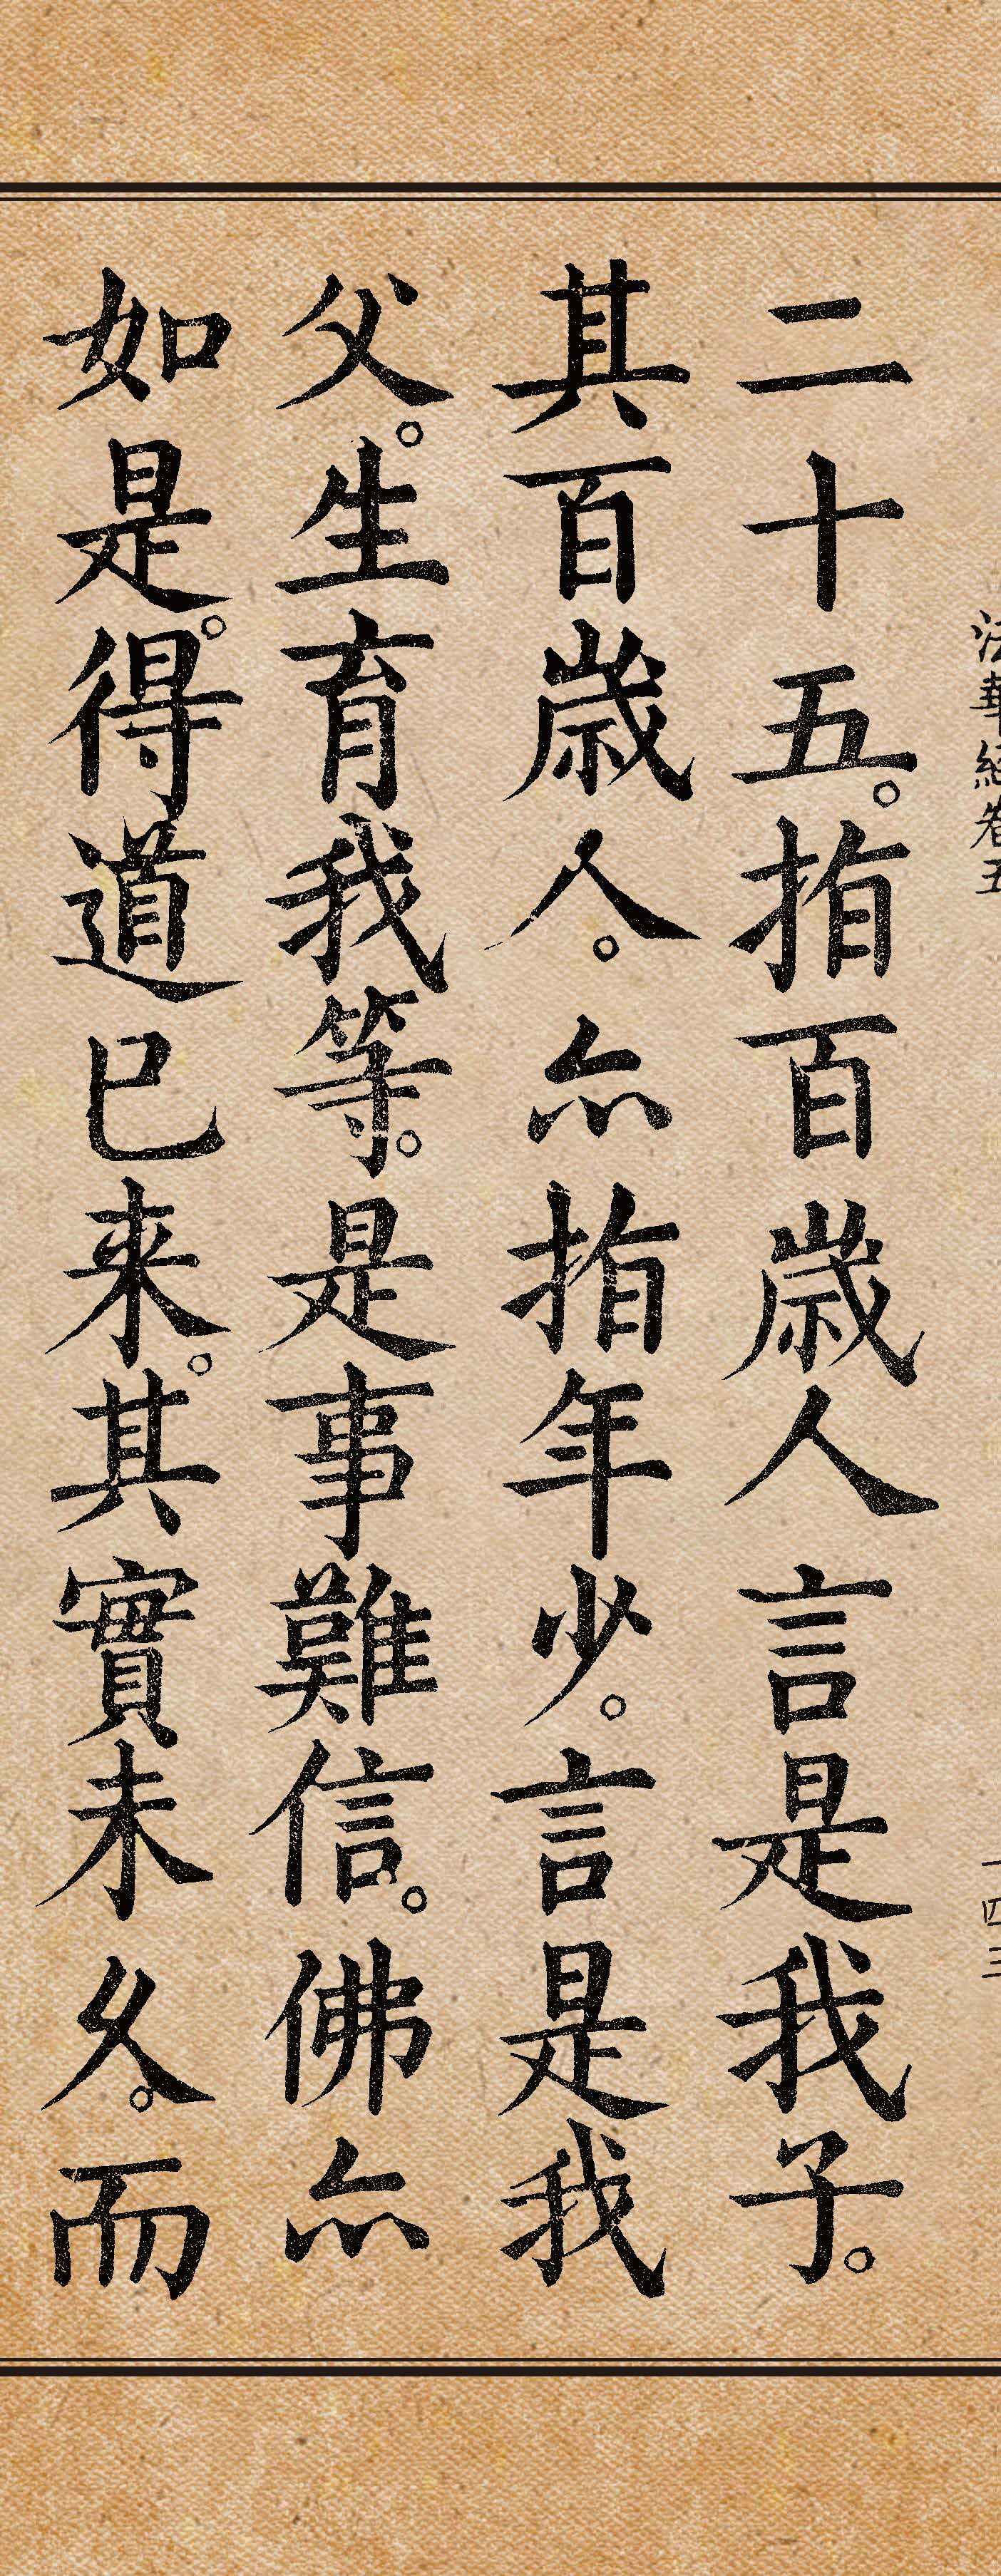 法華經卷五
一四三
二十五。指百歲人言是我子。
其百歲人。亦指年少。言是我
父。生育我等。是事難信。佛亦
如是。得道已來。其實未久。而